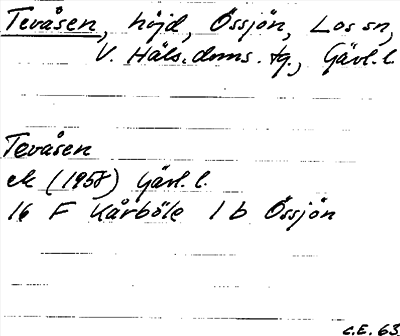 Tevåsen, höjd, Össjön, Los sn,
V. Häls. doms. tg., Gävl. l.
Tevåsen
ek (1958) Gävl. l.
16 F Kårböle 1 b Össjön
C.E. 63